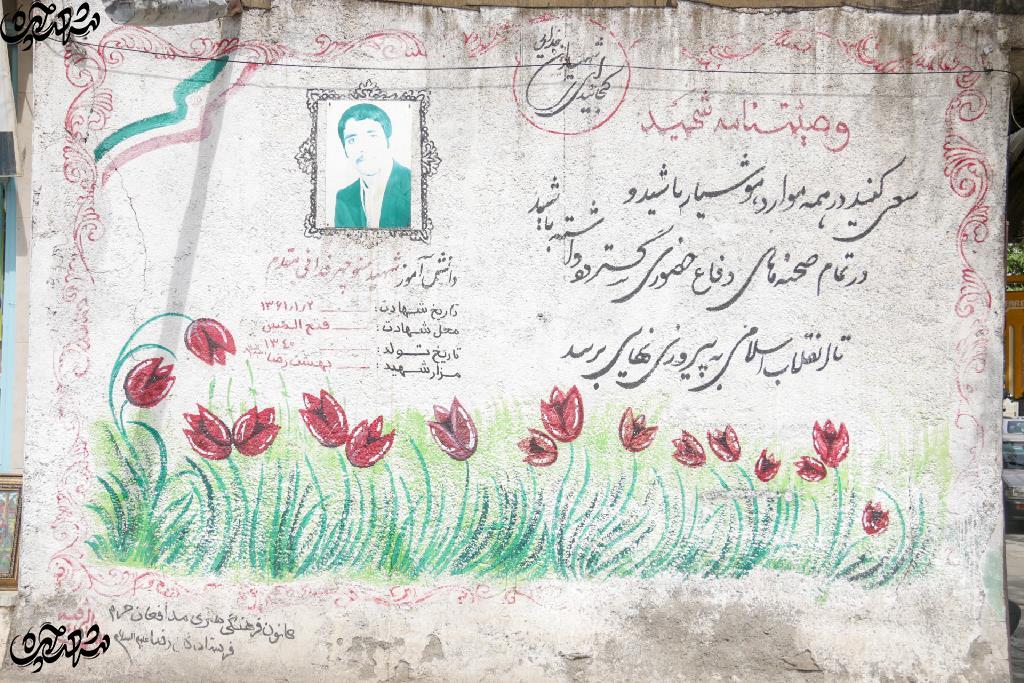 کجائید ای شهیدان خدایی
وصیتنامه شهید
سعی کنید در همه موارد هوشیار باشید و
در تمام صحنه‌های دفاع حضوری گسترده داشته باشید
تا انقلاب اسلامی به پیروزی نهایی برسد
دانش آموز شهید منوچهر فدائی مقدم
تاریخ شهادت: ۱۳۶۱/۱/۲
محل شهادت: فتح المبین
تاریخ تولد: ۱۳۴۰
مزار شهید: بهشت رضا
کانون فرهنگی هنری مدافعان حرم